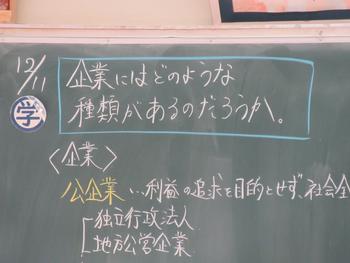 12/1
企業にはどのような
種類があるのだろうか。
学
〈企業〉
公企業…利益の追求を目的とせず、社会全
独立行政法人
地方公営企業